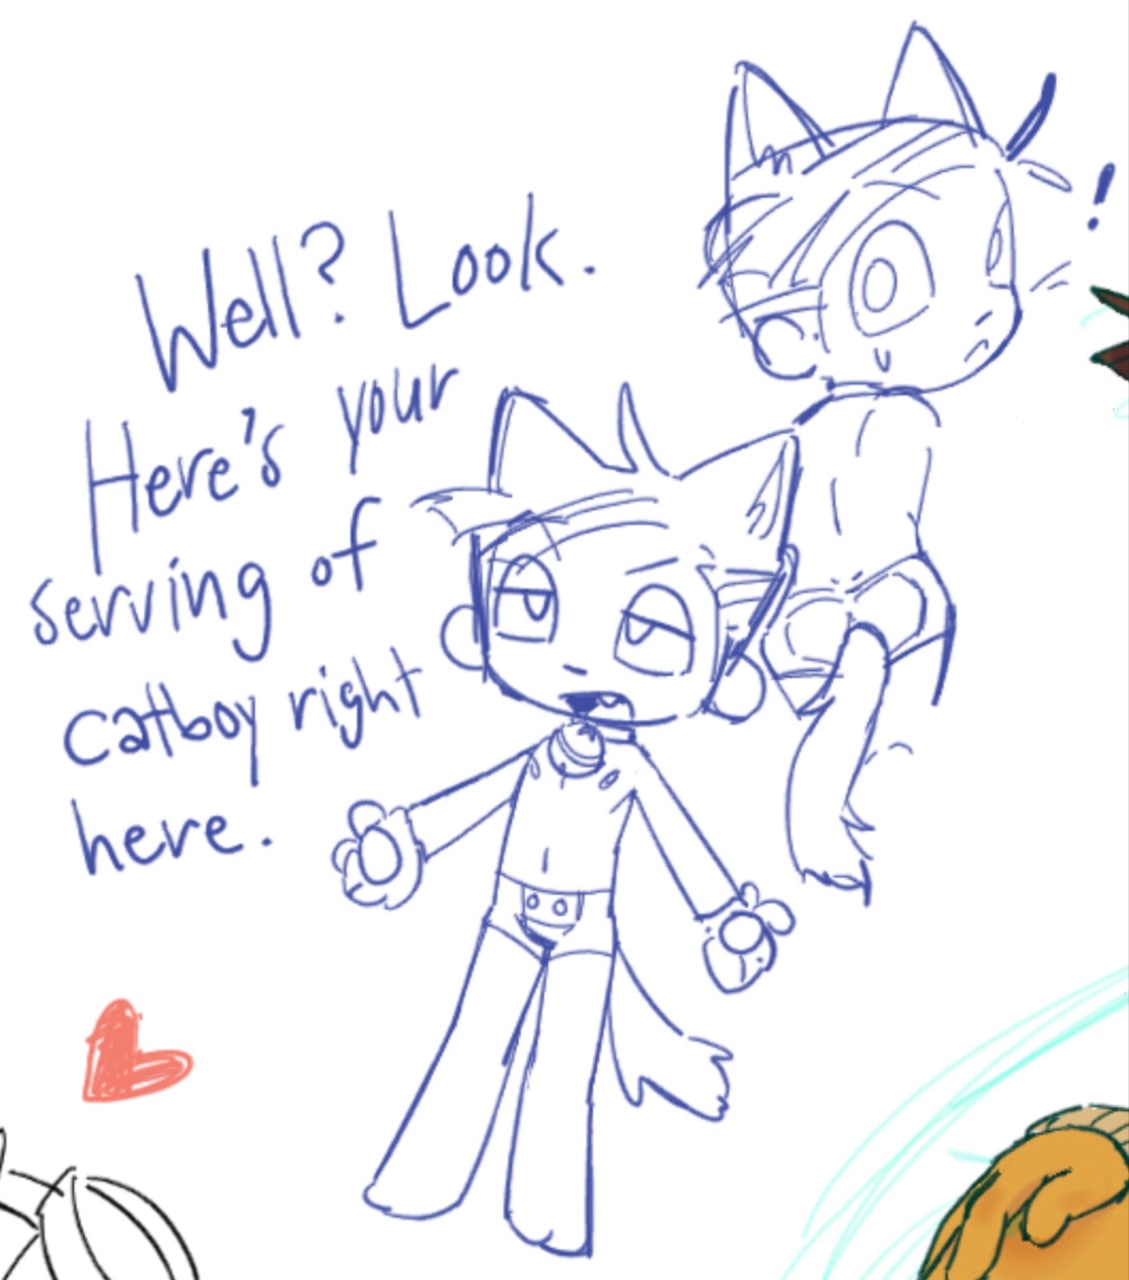 Well? Look.
Here's your
serving of
catboy right
here.
!